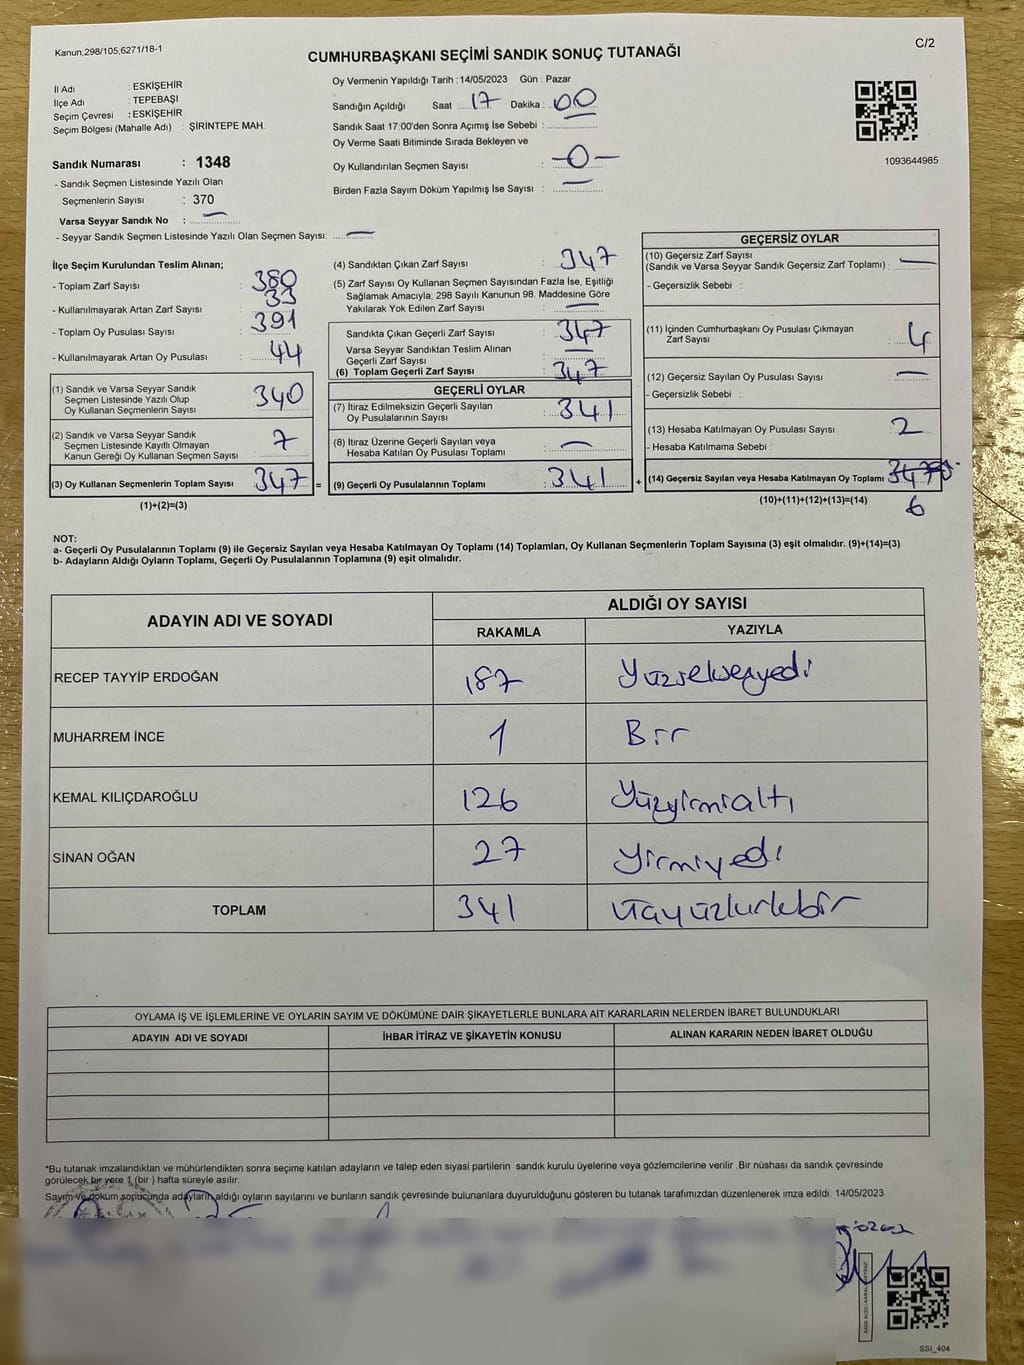 Kanun,298/105,6271/18-1
C/2
CUMHURBAŞKANI SEÇİMİ SANDIK SONUÇ TUTANAĞI
İl Adı : ESKİŞEHİR
İlçe Adı : TEPEBAŞI
Seçim Çevresi : ESKİŞEHİR
Seçim Bölgesi (Mahalle Adı) : ŞİRİNTEPE MAH.
Sandık Numarası : 1348
- Sandık Seçmen Listesinde Yazılı Olan
Seçmenlerin Sayısı : 370
Varsa Seyyar Sandık No : —
- Seyyar Sandık Seçmen Listesinde Yazılı Olan Seçmen Sayısı: —
Oy Vermenin Yapıldığı Tarih : 14/05/2023 Gün : Pazar
Sandığın Açıldığı Saat : 17 Dakika : 00
Sandık Saat 17:00'den Sonra Açımış İse Sebebi :
Oy Verme Saati Bitiminde Sırada Bekleyen ve
Oy Kullandırılan Seçmen Sayısı : -0-
Birden Fazla Sayım Döküm Yapılmış İse Sayısı : —
1093644985
İlçe Seçim Kurulundan Teslim Alınan;
- Toplam Zarf Sayısı : 380
- Kullanılmayarak Artan Zarf Sayısı : 33
- Toplam Oy Pusulası Sayısı : 391
- Kullanılmayarak Artan Oy Pusulası : 44
(1) Sandık ve Varsa Seyyar Sandık
Seçmen Listesinde Yazılı Olup
Oy Kullanan Seçmenlerin Sayısı : 340
(2) Sandık ve Varsa Seyyar Sandık
Seçmen Listesinde Kayıtlı Olmayan
Kanun Gereği Oy Kullanan Seçmen Sayısı : 7
(3) Oy Kullanan Seçmenlerin Toplam Sayısı : 347 =
(1)+(2)=(3)
(4) Sandıktan Çıkan Zarf Sayısı : 347
(5) Zarf Sayısı Oy Kullanan Seçmen Sayısından Fazla İse, Eşitliği
Sağlamak Amacıyla; 298 Sayılı Kanunun 98. Maddesine Göre
Yakılarak Yok Edilen Zarf Sayısı : —
Sandıkta Çıkan Geçerli Zarf Sayısı : 347
Varsa Seyyar Sandıktan Teslim Alınan
Geçerli Zarf Sayısı : —
(6) Toplam Geçerli Zarf Sayısı : 347
GEÇERLİ OYLAR
(7) İtiraz Edilmeksizin Geçerli Sayılan
Oy Pusulalarının Sayısı : 341
(8) İtiraz Üzerine Geçerli Sayılan veya
Hesaba Katılan Oy Pusulası Toplamı : —
(9) Geçerli Oy Pusulalarının Toplamı : 341 +
GEÇERSİZ OYLAR
(10) Geçersiz Zarf Sayısı
(Sandık ve Varsa Seyyar Sandık Geçersiz Zarf Toplamı) : —
- Geçersizlik Sebebi :
(11) İçinden Cumhurbaşkanı Oy Pusulası Çıkmayan
Zarf Sayısı : 4
(12) Geçersiz Sayılan Oy Pusulası Sayısı : —
- Geçersizlik Sebebi :
(13) Hesaba Katılmayan Oy Pusulası Sayısı : 2
- Hesaba Katılmama Sebebi :
(14) Geçersiz Sayılan veya Hesaba Katılmayan Oy Toplamı
(10)+(11)+(12)+(13)=(14) 6
NOT:
a- Geçerli Oy Pusulalarının Toplamı (9) ile Geçersiz Sayılan veya Hesaba Katılmayan Oy Toplamı (14) Toplamları, Oy Kullanan Seçmenlerin Toplam Sayısına (3) eşit olmalıdır. (9)+(14)=(3)
b- Adayların Aldığı Oyların Toplamı, Geçerli Oy Pusulalarının Toplamına (9) eşit olmalıdır.
ADAYIN ADI VE SOYADI
ALDIĞI OY SAYISI
RAKAMLA YAZIYLA
RECEP TAYYİP ERDOĞAN 187 Yüzseksenyedi
MUHARREM İNCE 1 Bir
KEMAL KILIÇDAROĞLU 126 Yüzyirmialtı
SİNAN OĞAN 27 Yirmiyedi
TOPLAM 341 Üçyüzkırkbir
OYLAMA İŞ VE İŞLEMLERİNE VE OYLARIN SAYIM VE DÖKÜMÜNE DAİR ŞİKAYETLERLE BUNLARA AİT KARARLARIN NELERDEN İBARET BULUNDUKLARI
ADAYIN ADI VE SOYADI İHBAR İTİRAZ VE ŞİKAYETİN KONUSU ALINAN KARARIN NEDEN İBARET OLDUĞU
*Bu tutanak imzalandıktan ve mühürlendikten sonra seçime katılan adayların ve talep eden siyasi partilerin sandık kurulu üyelerine veya gözlemcilerine verilir .Bir nüshası da sandık çevresinde
görülecek bir yere 1 (bir ) hafta süreyle asılır.
Sayım ve döküm sonucunda adayların aldığı oyların sayılarını ve bunların sandık çevresinde bulunanlara duyurulduğunu gösteren bu tutanak tarafımızdan düzenlenerek imza edildi. 14/05/2023
SSI_404